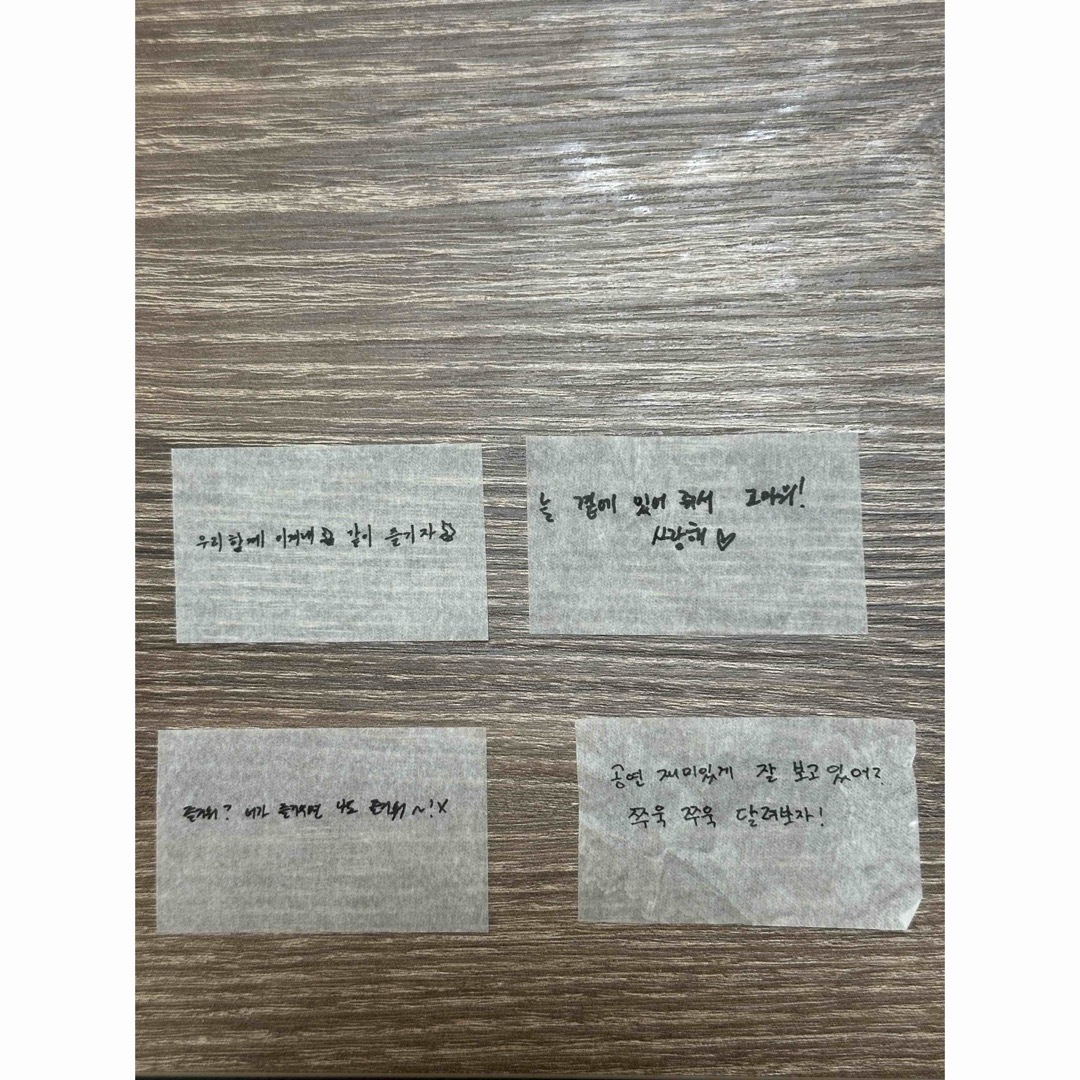 우리 함께 이겨내 같이 즐기자
늘 곁에 있어 줘서 고마워!
사랑해 ♡
즐거워? 너가 즐거우면 나도 즐거워~!X
공연 재미있게 잘 보고 있어?
쭈욱 쭈욱 달려보자!